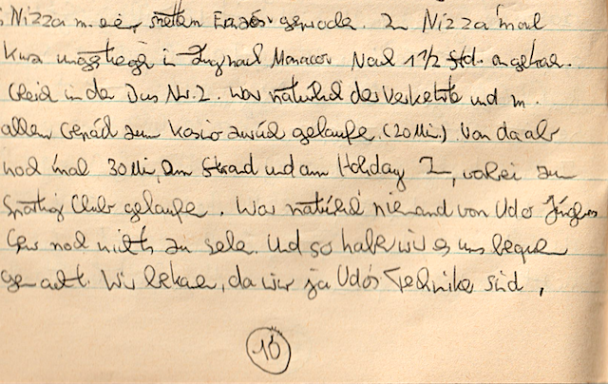 Nizza m. einer netten Französ. geworde. In Nizza 'mal
kurz umgestiegen in Zug nach Monaco. Nach 1 1/2 Std. angekom.
Gleich in den Bus Nr. 2. War natürlich der Verkehrte und m.
allem Gepäck zum Kasino zurück gelaufe. (20 Min.) Von da ab
noch 'mal 30 Min, am Strand und am Holiday I, vorbei zum
Sporting Club gelaufe. War natürlich niemand von Udo Jürgens
Crew noch nichts zu sehe. Und so habe wir es uns bequem
gemacht. Wir bekame, da wir ja Udos Technike sind,
10